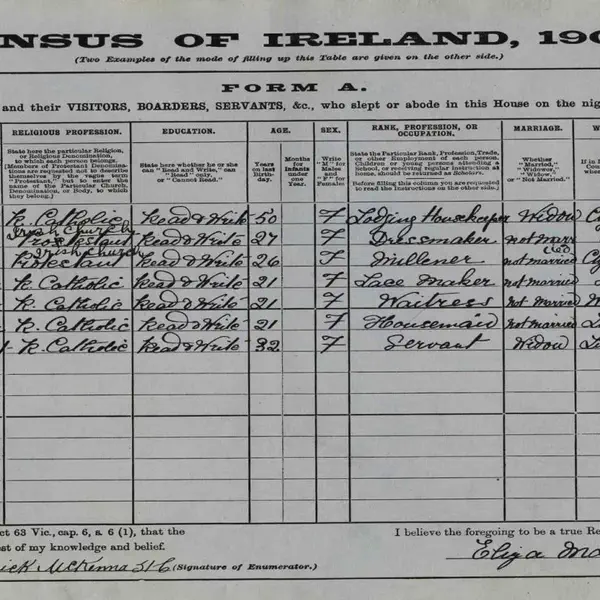 NSUS OF IRELAND, 190
(Two Examples of the mode of filling up this Table are given on the other side.)
FORM A.
and their VISITORS, BOARDERS, SERVANTS, &c., who slept or abode in this House on the nig
RELIGIOUS PROFESSION. EDUCATION. AGE. SEX. RANK, PROFESSION, OR OCCUPATION. MARRIAGE. W
State here the particular Religion, or Religious Denomination, to which each person belongs. [Members of Protestant Denominations are requested not to describe themselves by the vague term "Protestant," but to enter the name of the Particular Church, Denomination, or Body, to which they belong.]
State here whether he or she can "Read and Write," can "Read" only, or "Cannot Read."
Years on last Birthday.
Months for Infants under one Year.
Write "M" for Males and "F" for Females.
State the Particular Rank, Profession, Trade, or other Employment of each person. Children or young persons attending a School, or receiving regular instruction at home, should be returned as Scholars.
Before filling this column you are requested to read the Instructions on the other side.
Whether "Married," "Widower," "Widow," or "Not Married."
R. Catholic Read & Write 50 F Lodging Housekeeper Widow
Irish Church by
Protestant Read & Write 27 F Dressmaker not married
Irish Church
Protestant Read & Write 26 F Millener not married
R. Catholic Read & Write 21 F Lace Maker not married
R. Catholic Read & Write 21 F Waitress not Married
R. Catholic Read & Write 21 F Housemaid not married
R. Catholic Read & Write 32 F Servant Widow
ct 63 Vic., cap. 6, s. 6 (1), that the
est of my knowledge and belief.
ick McKenna (Signature of Enumerator.)
I believe the foregoing to be a true Re
Eliza Ma